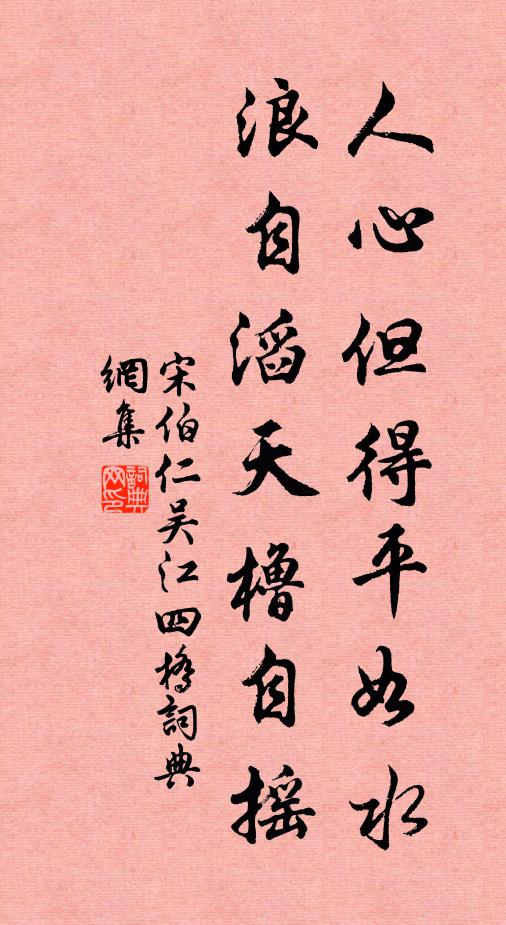 人心但得平如水
浪自滔天橹自摇
宋伯仁吴江四橋詞典
網集
詞典
网印